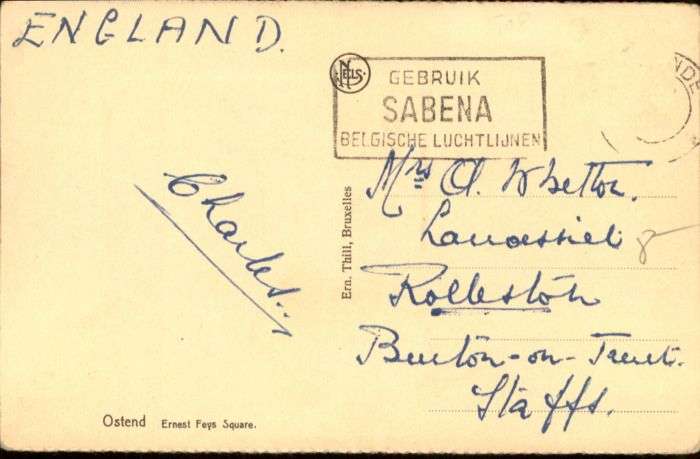 ENGLAND.
NELS
GEBRUIK
SABENA
BELGISCHE LUCHTLIJNEN
NDE
Mrs A. Whetton.
Rolleston
Burton-on-Trent.
Staffs.
Charles..
Ern. Thill, Bruxelles
Ostend Ernest Feys Square.